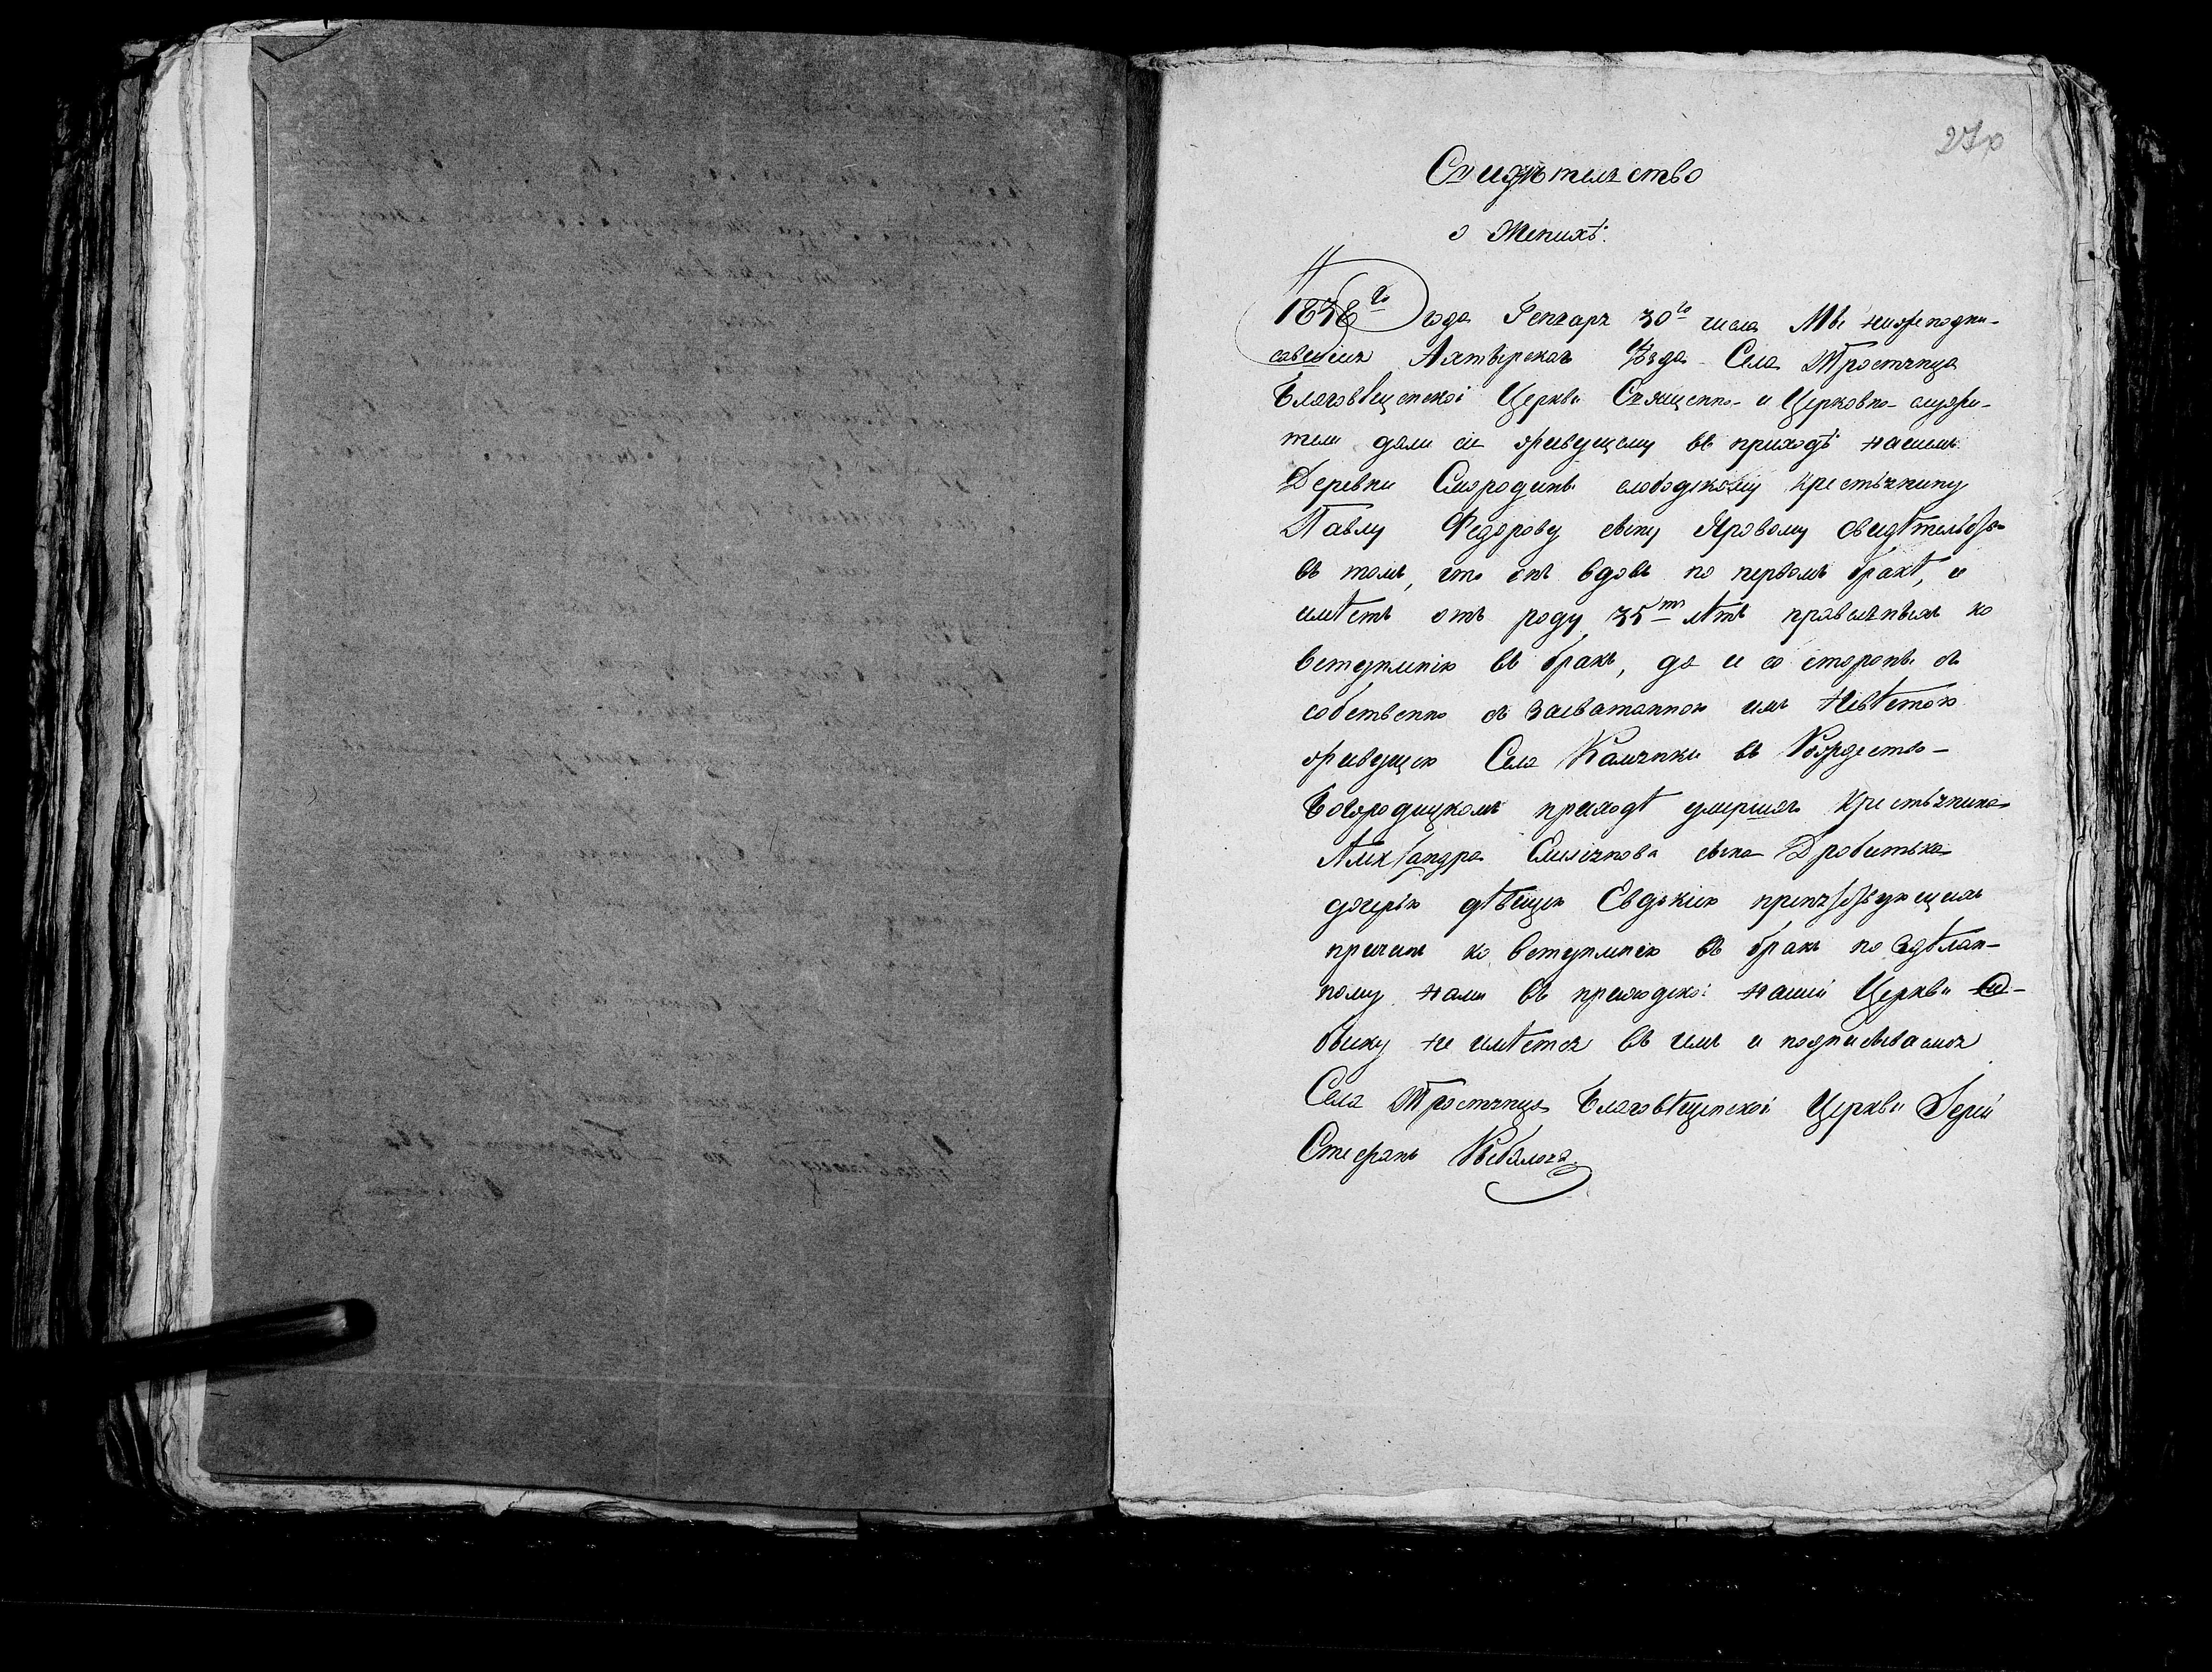 270
Свидѣтельство
о Женихѣ.
1838го года Генваря 30го числа Мы нижеподпи-
савшіися Ахтырскаго Уѣзда Села Тростянца
Благовѣщенской Церкви Священно- и Церковно- служи-
тели дали сіе живущему въ приходѣ нашемъ
Деревни Смородины слободскому крестьянину
Павлу Федорову сыну Яровому свидѣтельство
въ томъ, что онъ вдовъ по первомъ бракѣ, и
имѣетъ отъ роду 35ть лѣтъ правильныхъ ко
вступленію въ бракъ, да и со стороны съ
собственно съ засватанною имъ Невѣстою
живущею Села Камянки въ Рождество-
Богородицкомъ приходѣ умершаго крестьянина
Александра Емиліянова сына Дробитька
дочерью дѣвицею Евдокіею препятствующихъ
причинъ ко вступленію въ бракъ по здѣлан-
ному нами въ приходской нашей Церкви Ѡ-
быску не имѣется въ чемъ и подписываемся
Села Тростянца Благовѣщенской Церкви Іерей
Стефанъ